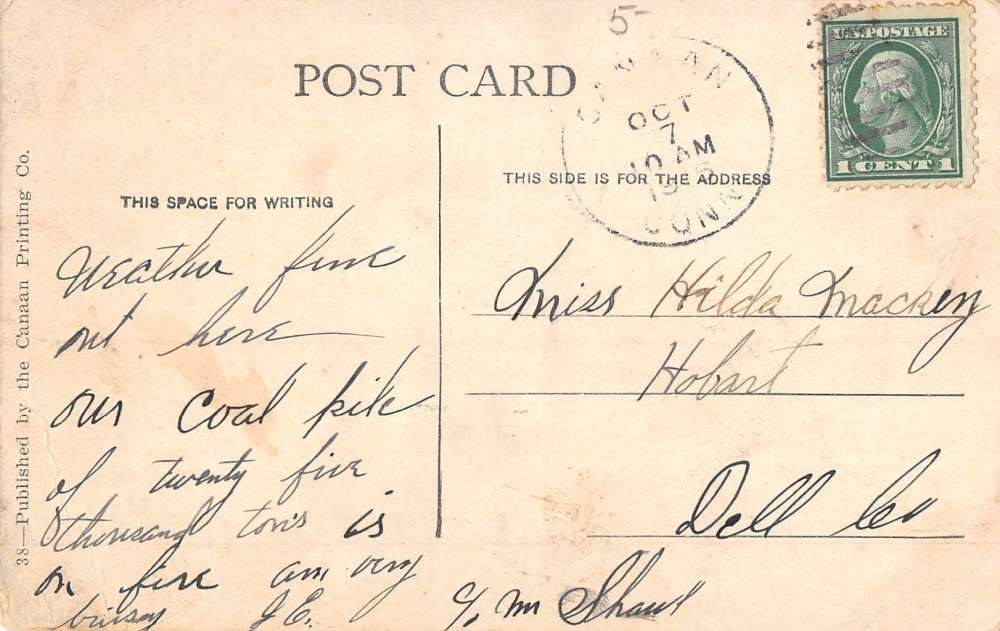 5-
POST CARD
CANAAN
OCT
7
10 AM
CONN
U.S. POSTAGE
1 CENT 1
THIS SPACE FOR WRITING
THIS SIDE IS FOR THE ADDRESS
38—Published by the Canaan Printing Co.
Weather fine
out here
our coal pile
of twenty five
thousand tons is
on fire am very
J.E.
Miss Hilda Mackey
Hobart
Dell Co
c/o Mr Shaw